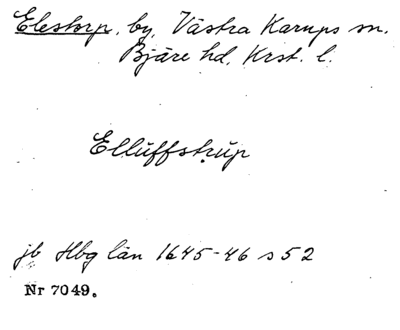 Elestorp, by, Västra Karups sn.
Bjäre hd, Krst. l.
Elluffstrup
jb Hbg län 1645-46 s 52
Nr 7049.